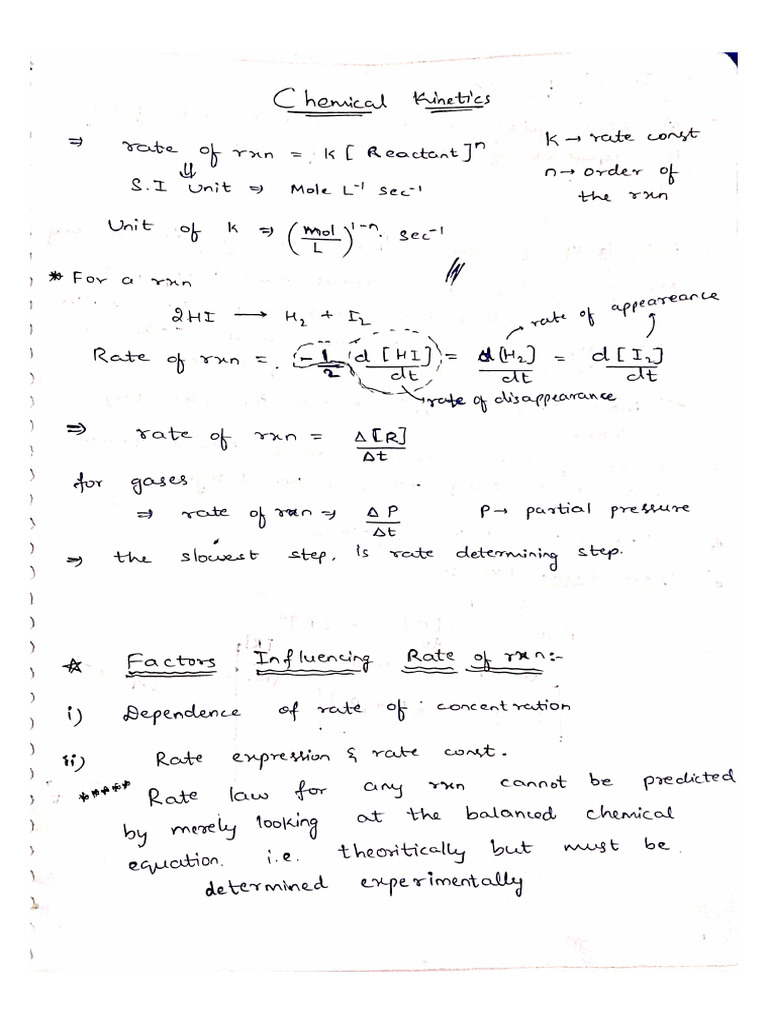 Chemical Kinetics
⇒ rate of rxn = K [ Reactant]ⁿ K → rate const
⇓ n → order of
S.I Unit ⇒ Mole L⁻¹ sec⁻¹ the rxn
Unit of K ⇒ (mol/L)¹⁻ⁿ. sec⁻¹
* For a rxn
2HI → H₂ + I₂
→ rate of appeareance
Rate of rxn = -1/2 d[HI]/dt = d(H₂]/dt = d[I₂]/dt
→ rate of disappearance
⇒ rate of rxn = Δ[R]/Δt
for gases
⇒ rate of rxn ⇒ ΔP/Δt P → partial pressure
⇒ the slowest step, is rate determining step.
☆ Factors Influencing Rate of rxn:-
i) Dependence of rate of concentration
ii) Rate expression & rate const.
***** Rate law for any rxn cannot be predicted
by merely looking at the balanced chemical
equation. i.e. theoritically but must be
determined experimentally